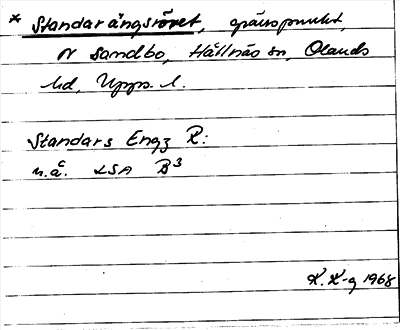 * Standarängsröret, gränspunkt,
N Sandbo, Hållnäs sn, Olands
hd, Upps. l.
Standars Engz R:
u.å. LSA B3
K. K-g 1968